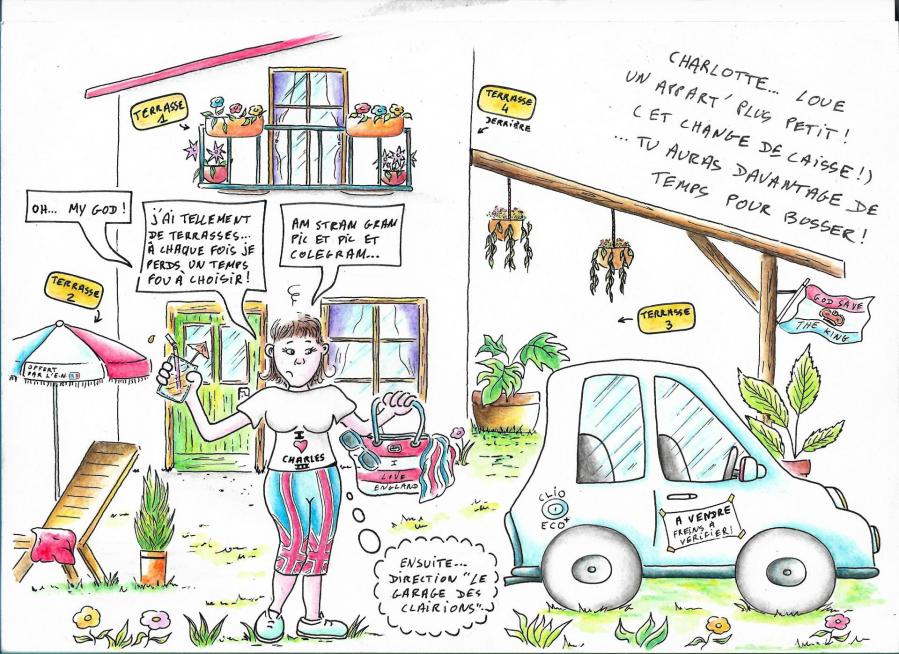 CHARLOTTE... LOUE
UN APPART' PLUS PETIT !
( ET CHANGE DE CAISSE ! )
... TU AURAS DAVANTAGE DE
TEMPS POUR BOSSER !
TERRASSE
1
TERRASSE
4
DERRIÈRE
OH... MY GOD !
J'AI TELLEMENT
DE TERRASSES...
À CHAQUE FOIS JE
PERDS UN TEMPS
FOU À CHOISIR !
AM STRAN GRAN
PIC ET PIC ET
COLEGRAM...
TERRASSE
2
TERRASSE
3
GOD SAVE
THE KING
OFFERT
PAR L'E.N
I
CHARLES
III
I
LOVE
ENGLAND
CLIO
ECO+
A VENDRE
FREINS A
VERIFIER !
ENSUITE...
DIRECTION "LE
GARAGE DES
CLAIRIONS"...